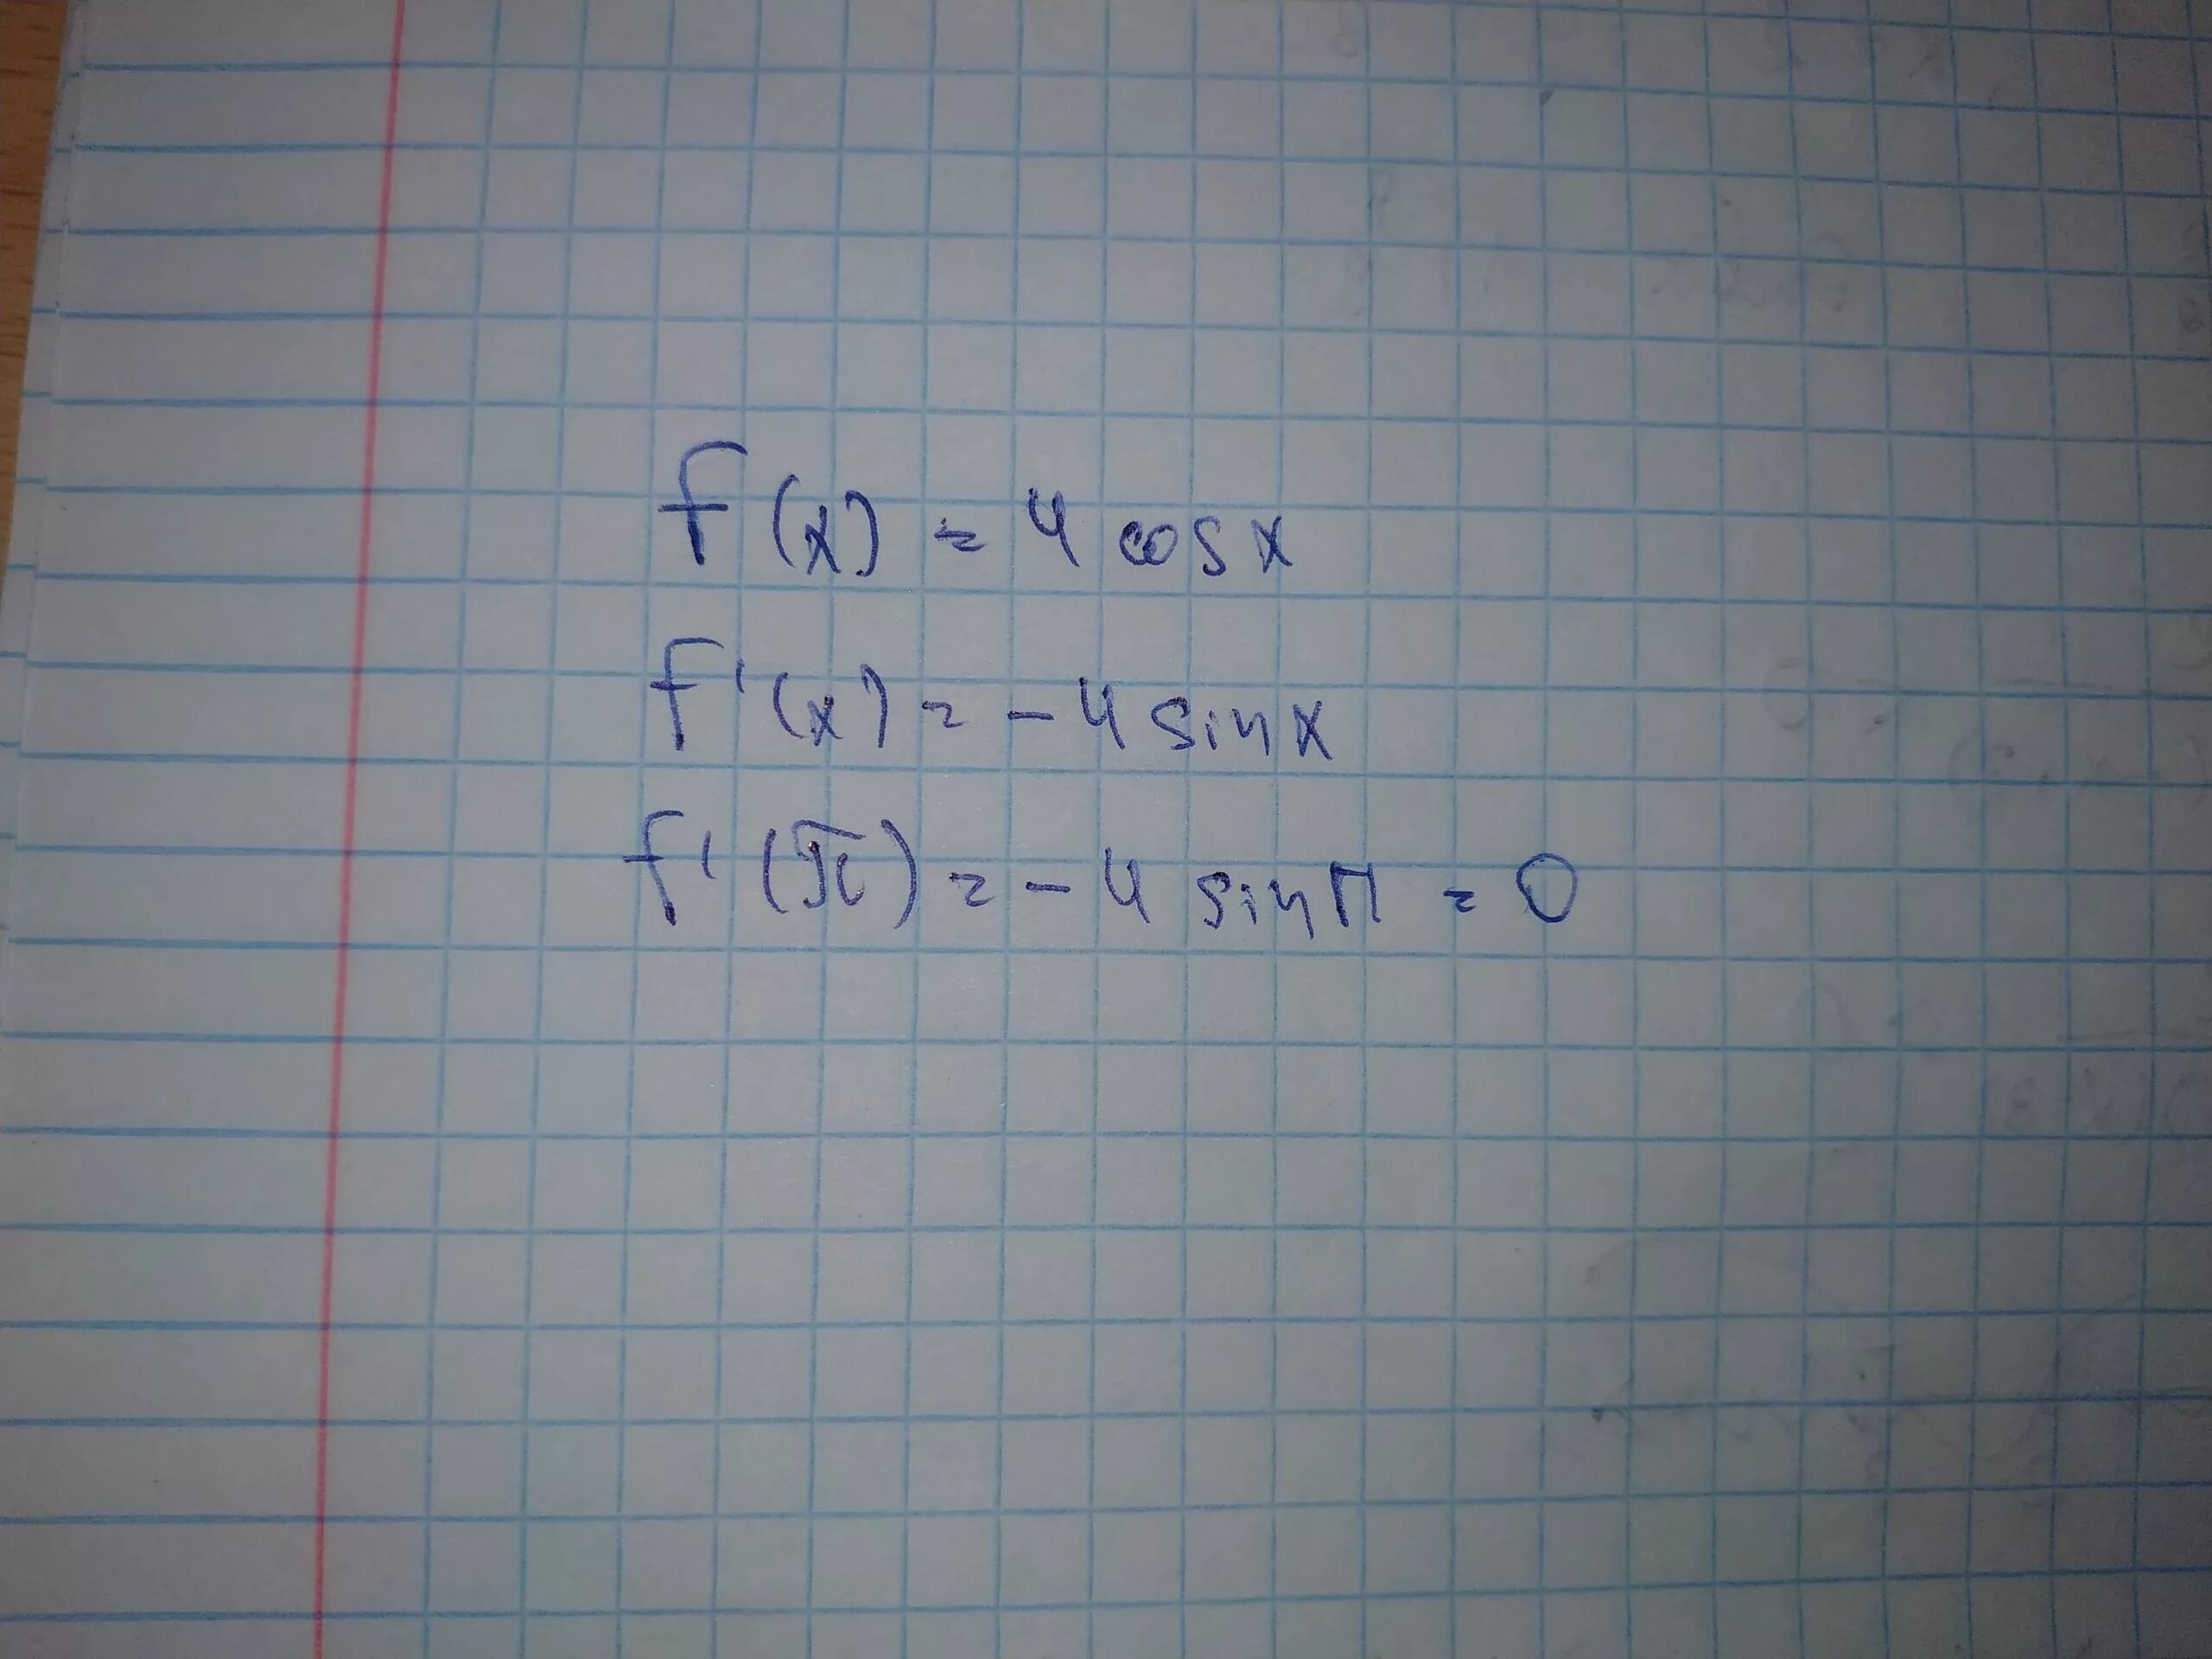 f(x) = 4 cos x
f'(x) = - 4 sin x
f'(π) = - 4 sin π = 0